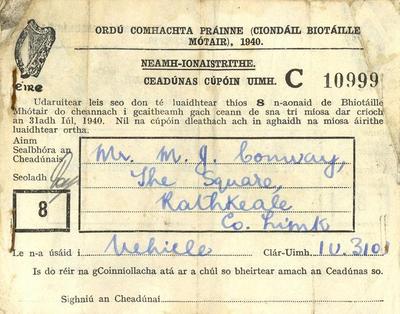 ORDÚ COMHACHTA PRÁINNE (CIONDÁIL BIOTÁILLE
MÓTAIR), 1940.
NEAMH-IONAISTRITHE.
éire
CEADÚNAS CÚPÓIN UIMH. C 10999
Udaruitear leis seo don té luaidhtear thíos 8 n-aonaid de Bhiotáille
Mhótair do cheannach i gcaitheamh gach ceann de sna trí míosa dar críoch
an 31adh Iúl, 1940. Níl na cúpóin dleathach ach in aghaidh na míosa áirithe
luaidhtear ortha.
Ainm
Sealbhóra an
Cheadúnais
Mr. M. J. Conway,
Seoladh
The Square,
Rathkeale
8
Co. Limk
Le n-a úsáid i Vehicle Clár-Uimh. IV. 310
Is do réir na gCoinníollacha atá ar a chúl so bheirtear amach an Ceadúnas so.
Sighniú an Cheadúnaí